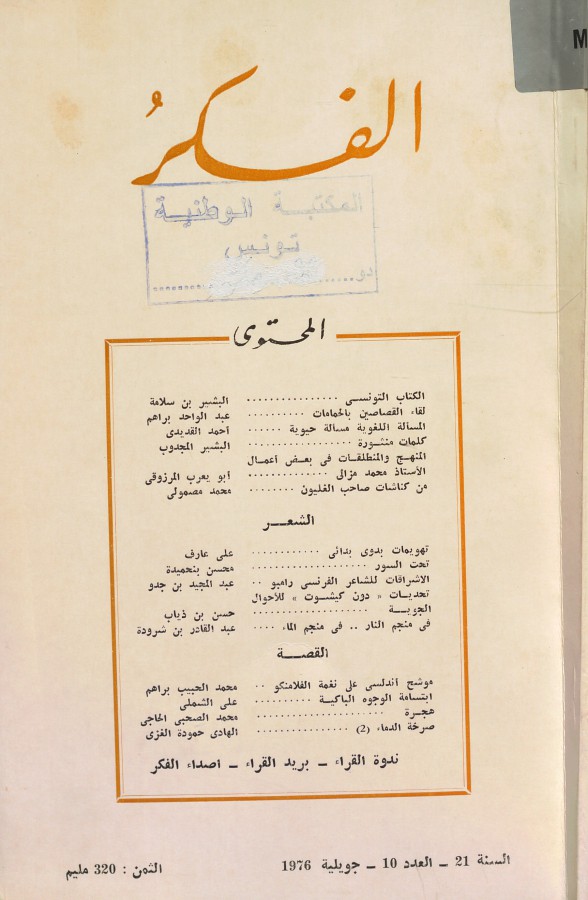 M
الفكر
المكتبة الوطنية
تونس
المحتوى
الكتاب التونسي .................. البشير بن سلامة
لقاء القصاصين بالحمامات .......... عبد الواحد براهم
المسألة اللغوية مسألة حيوية ...... أحمد القديدى
كلمات منثورة .................. البشير المجدوب
المنهج والمنطلقات فى بعض أعمال
الأستاذ محمد مزالى ............. أبو يعرب المرزوقى
من كناشات صاحب الغليون ........ محمد مصمولى
الشعر
تهويمات بدوى بدائى ............ على عارف
تحت السور .................. محسن بنحميدة
الاشراقات للشاعر الفرنسى رامبو .. عبد المجيد بن جدو
تحديات « دون كيشوت » للأحوال
الجوية .................. حسن بن ذياب
فى منجم النار .. فى منجم الماء .... عبد القادر بن شرودة
القصة
موشح أندلسى على نغمة الفلامنكو .. محمد الحبيب براهم
ابتسامة الوجوه الباكية .......... على الشملى
هجرة .................. محمد الصحبى الحاجى
صرخة الدماء (2) ................ الهادى حمودة الغزى
ندوة القراء – بريد القراء – أصداء الفكر
السنة 21 – العدد 10 – جويلية 1976
الثمن : 320 مليم